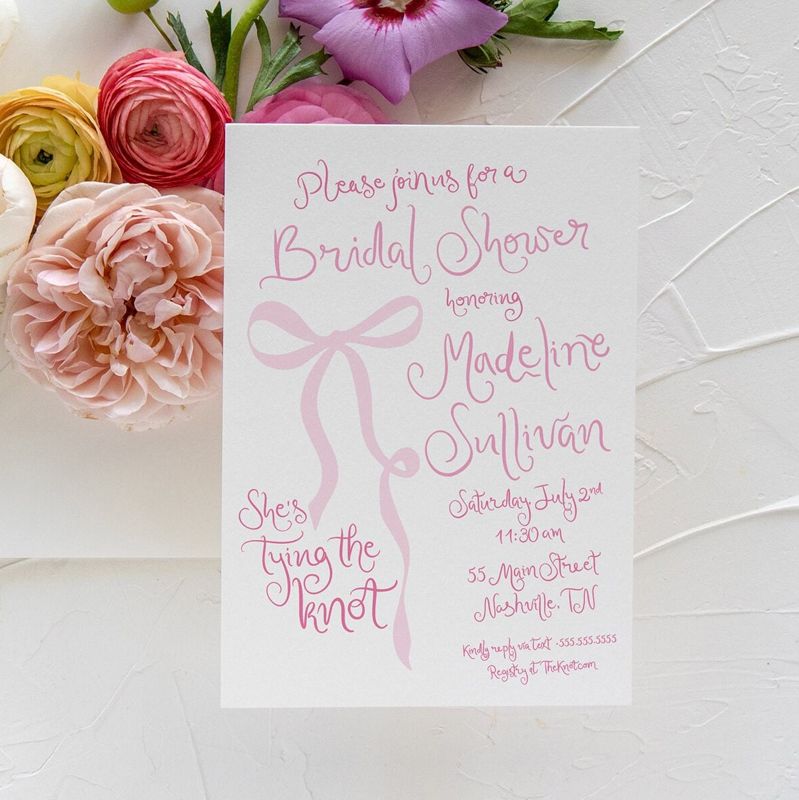 Please join us for a
Bridal Shower
honoring
Madeline
Sullivan
Saturday, July 2nd
11:30 am
55 Main Street
Nashville, TN
Kindly reply via text - 555.555.5555
Registry at TheKnot.com
She's
tying the
knot